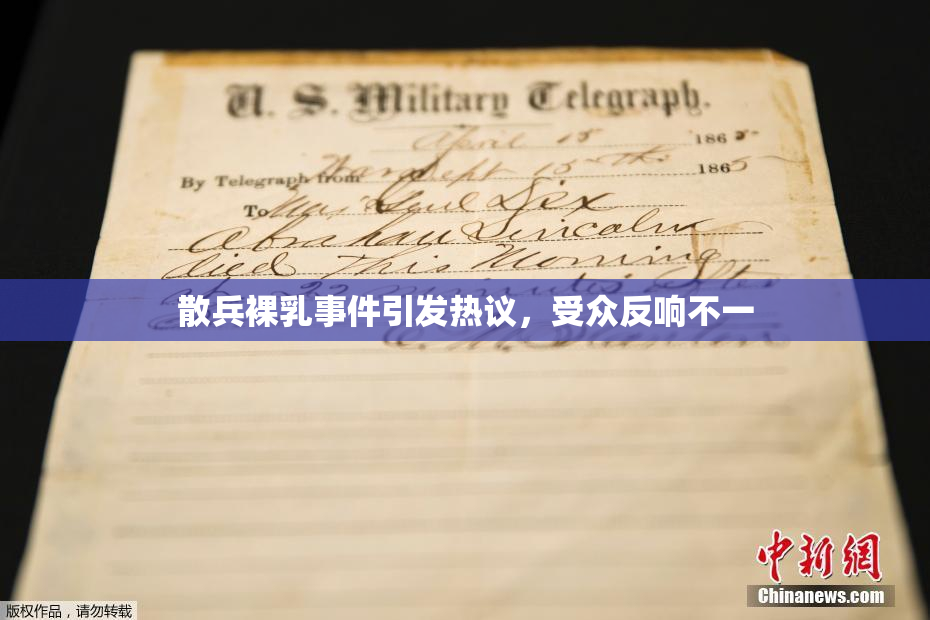 U. S. Military Telegraph.
April 15 1865
By Telegraph from War Dept 15th 1865
To Maj Genl Dix
Abraham Lincoln
died This Morning
at 22 minutes after
散兵裸乳事件引发热议，受众反响不一
E. M. Stanton
中新網
Chinanews.com
版权作品，请勿转载